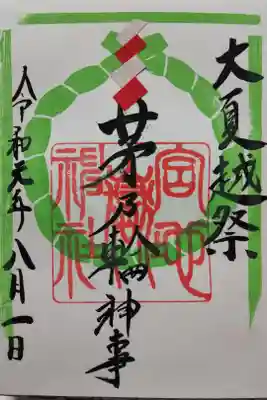 大夏越祭
茅乃輪神事
令和元年八月一日